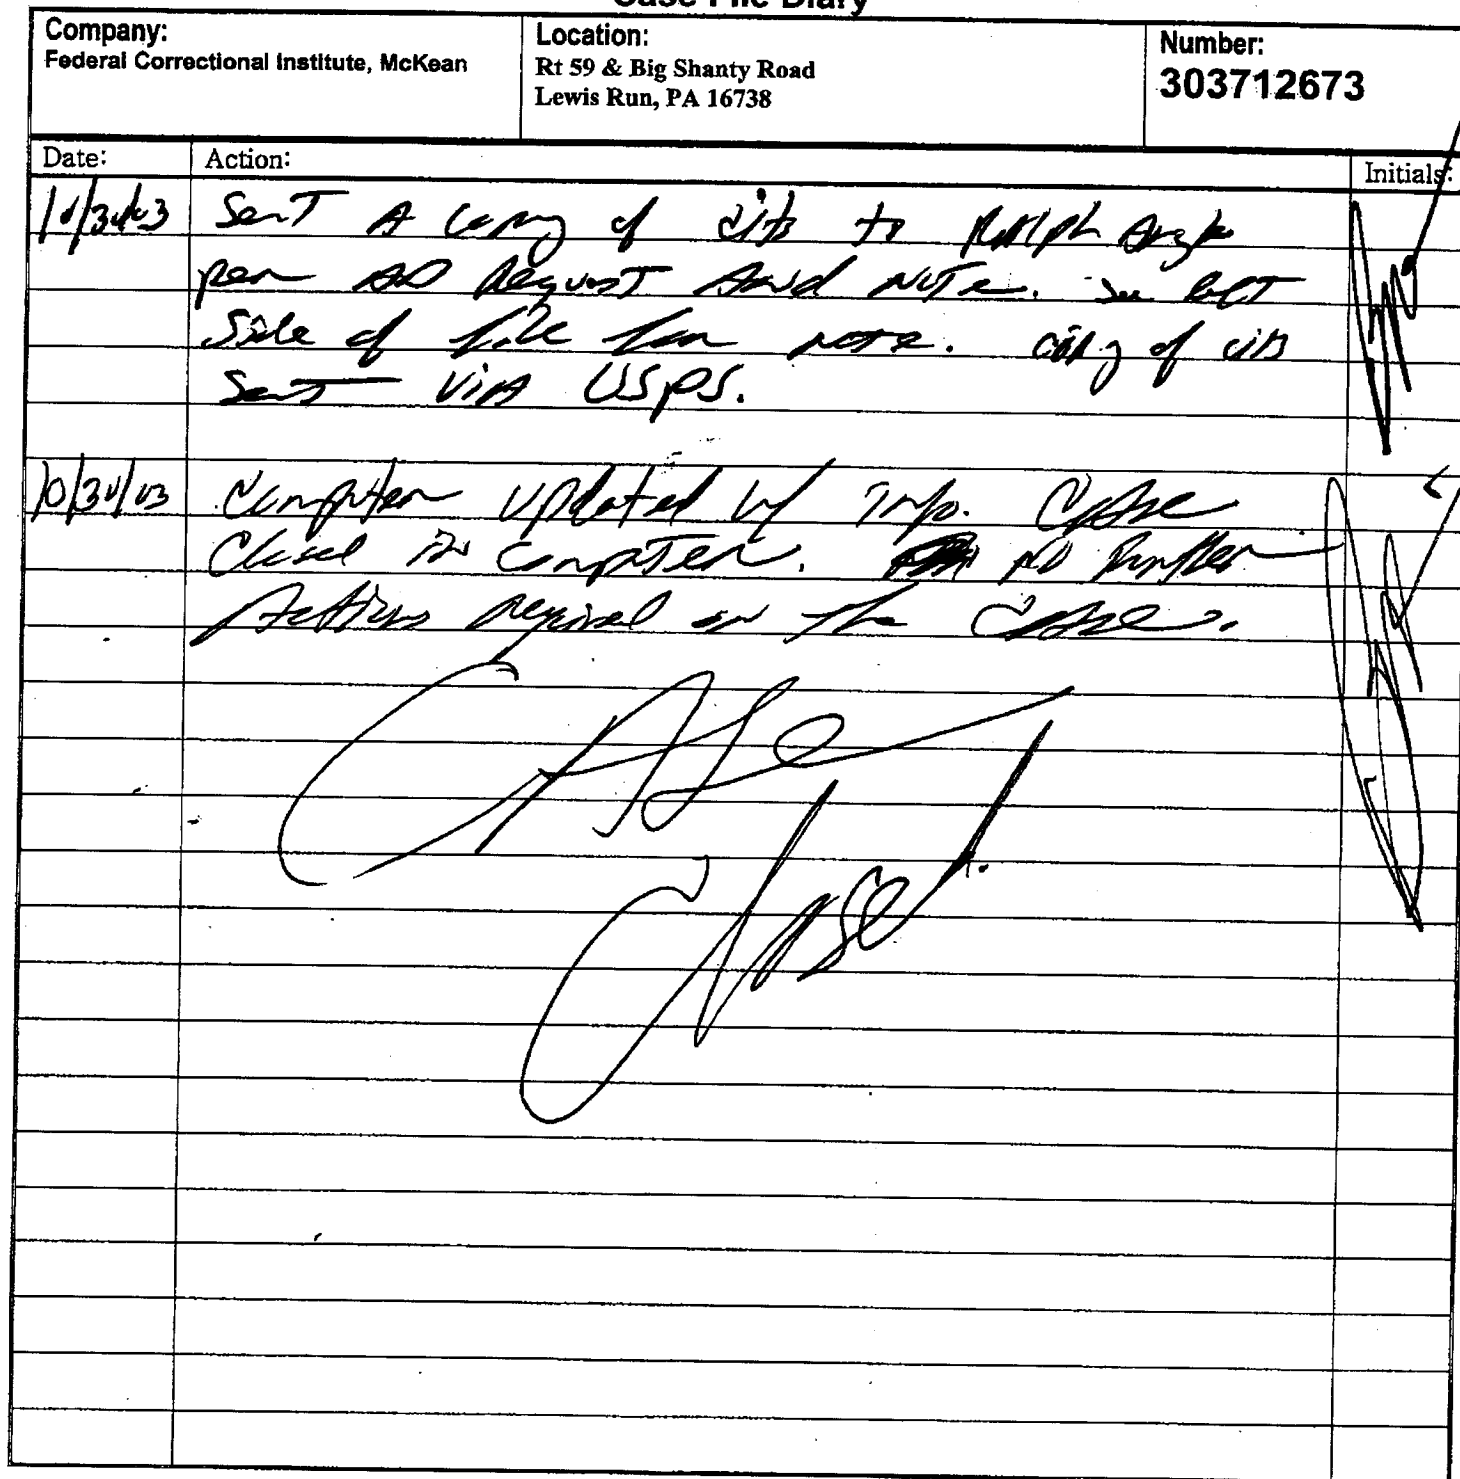 Case File Diary
Company:
Federal Correctional Institute, McKean
Location:
Rt 59 & Big Shanty Road
Lewis Run, PA 16738
Number:
303712673
Date:
Action:
Initials:
10/30/03 Sent A copy of cits to Ralph
per AD Request And Note. See left
Side of file for note. copy of cits
Sent Via USPS.
10/30/03 Computer Updated w/ Info. Case
Closed in computer. No further
Actions required on the Case.
CASe
Closed.